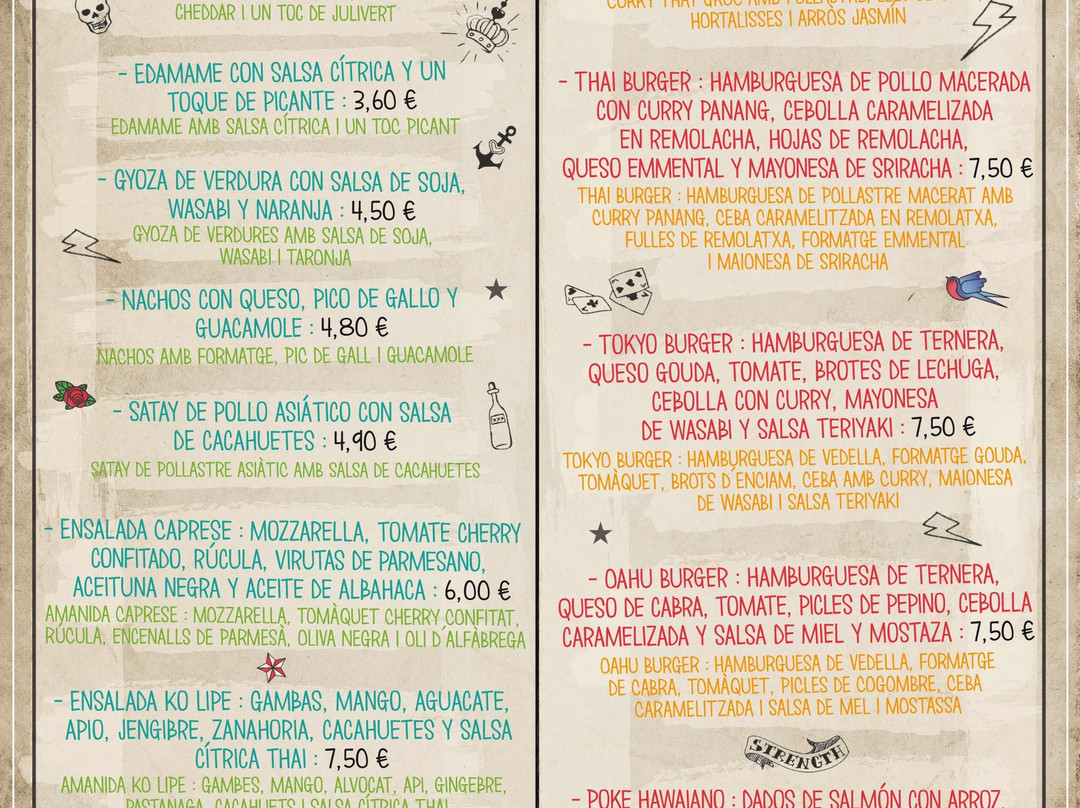 CHEDDAR I UN TOC DE JULIVERT
- EDAMAME CON SALSA CÍTRICA Y UN
TOQUE DE PICANTE : 3,60 €
EDAMAME AMB SALSA CÍTRICA I UN TOC PICANT
- GYOZA DE VERDURA CON SALSA DE SOJA,
WASABI Y NARANJA : 4,50 €
GYOZA DE VERDURES AMB SALSA DE SOJA,
WASABI I TARONJA
- NACHOS CON QUESO, PICO DE GALLO Y
GUACAMOLE : 4,80 €
NACHOS AMB FORMATGE, PIC DE GALL I GUACAMOLE
- SATAY DE POLLO ASIÁTICO CON SALSA
DE CACAHUETES : 4,90 €
SATAY DE POLLASTRE ASIÀTIC AMB SALSA DE CACAHUETES
- ENSALADA CAPRESE : MOZZARELLA, TOMATE CHERRY
CONFITADO, RÚCULA, VIRUTAS DE PARMESANO,
ACEITUNA NEGRA Y ACEITE DE ALBAHACA : 6,00 €
AMANIDA CAPRESE : MOZZARELLA, TOMÀQUET CHERRY CONFITAT,
RÚCULA, ENCENALLS DE PARMESÀ, OLIVA NEGRA I OLI D´ALFÀBREGA
- ENSALADA KO LIPE : GAMBAS, MANGO, AGUACATE,
APIO, JENGIBRE, ZANAHORIA, CACAHUETES Y SALSA
CÍTRICA THAI : 7,50 €
AMANIDA KO LIPE : GAMBES, MANGO, ALVOCAT, API, GINGEBRE,
PASTANAGA, CACAHUETS I SALSA CÍTRICA THAI
HORTALISSES I ARRÒS JASMÍN
- THAI BURGER : HAMBURGUESA DE POLLO MACERADA
CON CURRY PANANG, CEBOLLA CARAMELIZADA
EN REMOLACHA, HOJAS DE REMOLACHA,
QUESO EMMENTAL Y MAYONESA DE SRIRACHA : 7,50 €
THAI BURGER : HAMBURGUESA DE POLLASTRE MACERAT AMB
CURRY PANANG, CEBA CARAMELITZADA EN REMOLATXA,
FULLES DE REMOLATXA, FORMATGE EMMENTAL
I MAIONESA DE SRIRACHA
- TOKYO BURGER : HAMBURGUESA DE TERNERA,
QUESO GOUDA, TOMATE, BROTES DE LECHUGA,
CEBOLLA CON CURRY, MAYONESA
DE WASABI Y SALSA TERIYAKI : 7,50 €
TOKYO BURGER : HAMBURGUESA DE VEDELLA, FORMATGE GOUDA,
TOMÀQUET, BROTS D´ENCIAM, CEBA AMB CURRY, MAIONESA
DE WASABI I SALSA TERIYAKI
- OAHU BURGER : HAMBURGUESA DE TERNERA,
QUESO DE CABRA, TOMATE, PICLES DE PEPINO, CEBOLLA
CARAMELIZADA Y SALSA DE MIEL Y MOSTAZA : 7,50 €
OAHU BURGER : HAMBURGUESA DE VEDELLA, FORMATGE
DE CABRA, TOMÀQUET, PICLES DE COGOMBRE, CEBA
CARAMELITZADA I SALSA DE MEL I MOSTASSA
STRENGTH
- POKE HAWAIANO : DADOS DE SALMÓN CON ARROZ